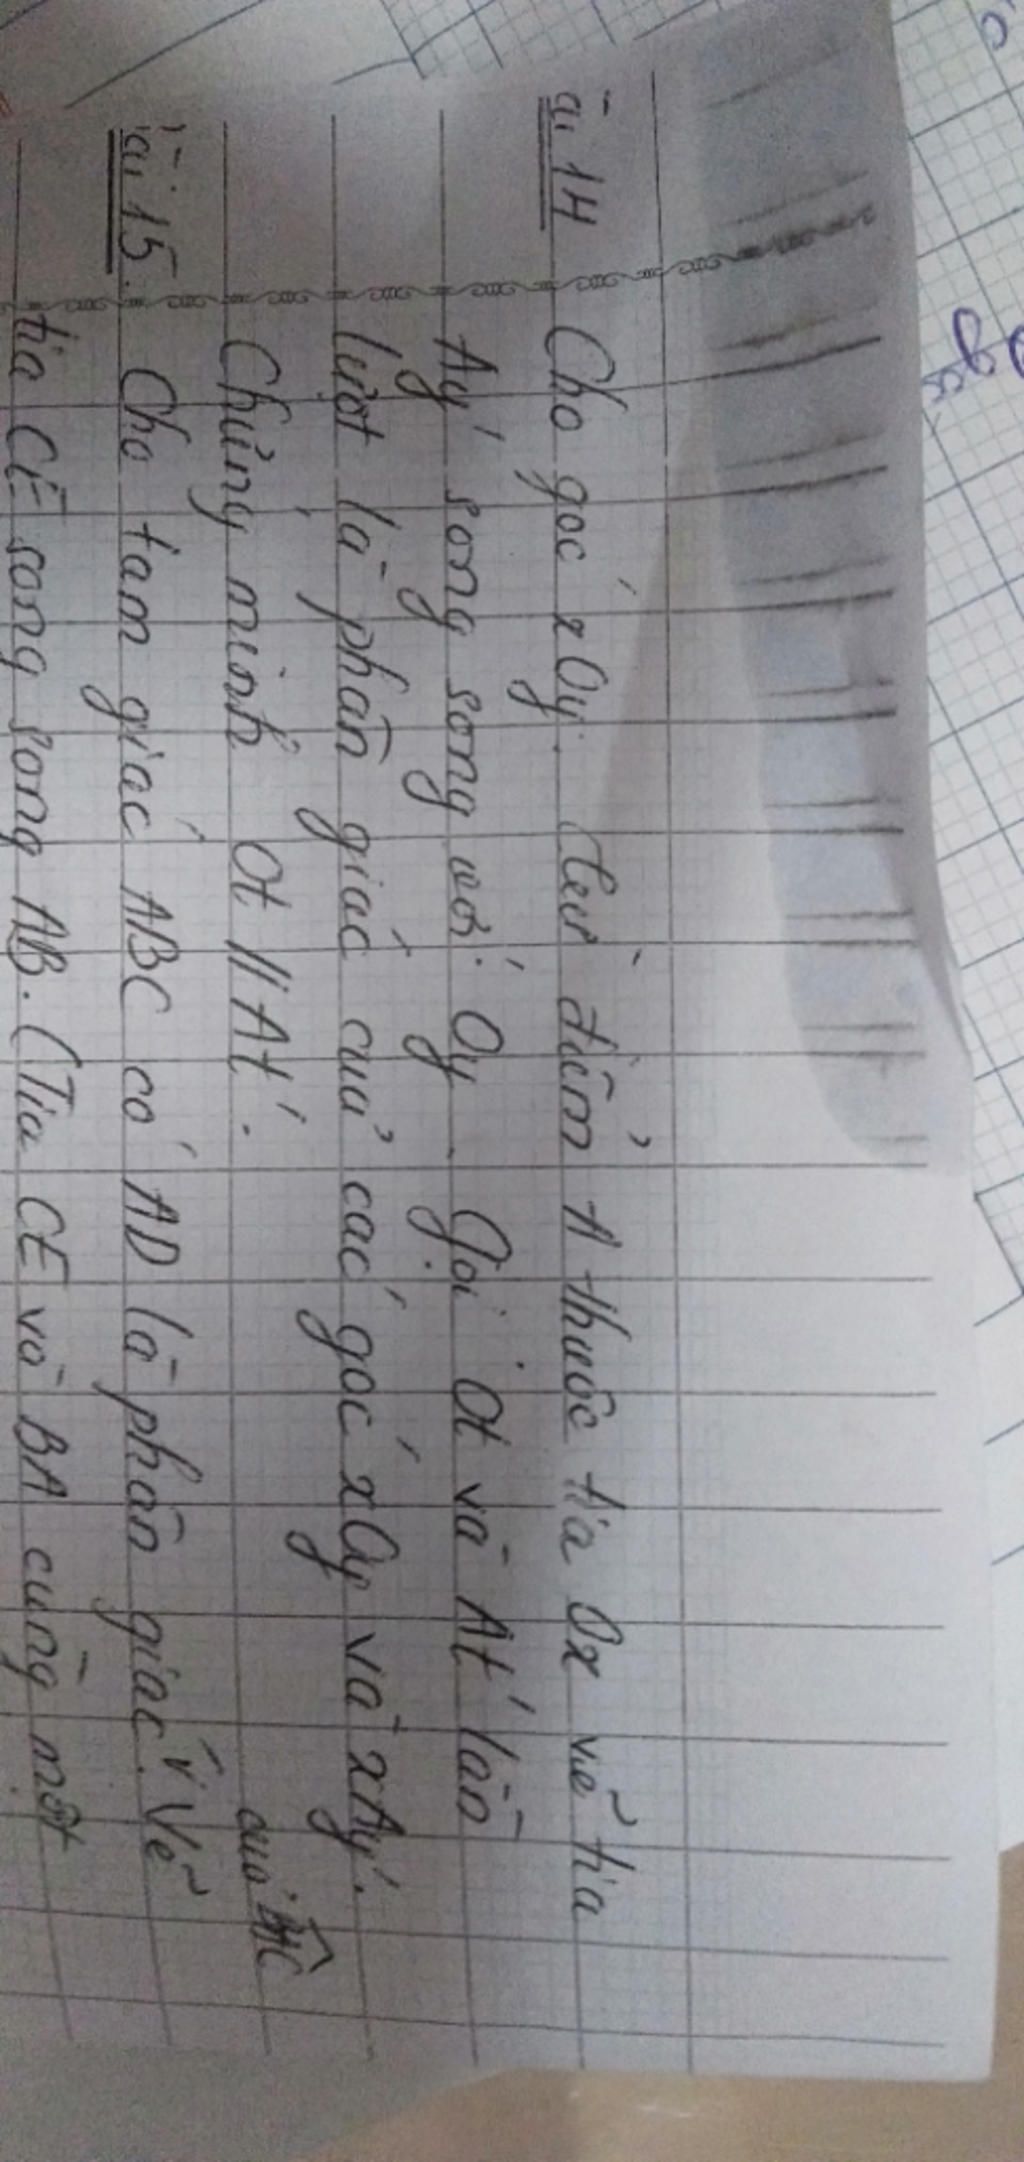 ài 14 Cho góc xOy. Từ điểm A thuộc tia Ox vẽ tia
Ay' song song với Oy. Gọi Ot và At' lần
lượt là phân giác của các góc xOy và xAy'.
Chứng minh Ot // At'.
của BAC
ài 15. Cho tam giác ABC có AD là phân giác v. Vẽ
tia CE song song AB. (Tia CE và BA cùng một